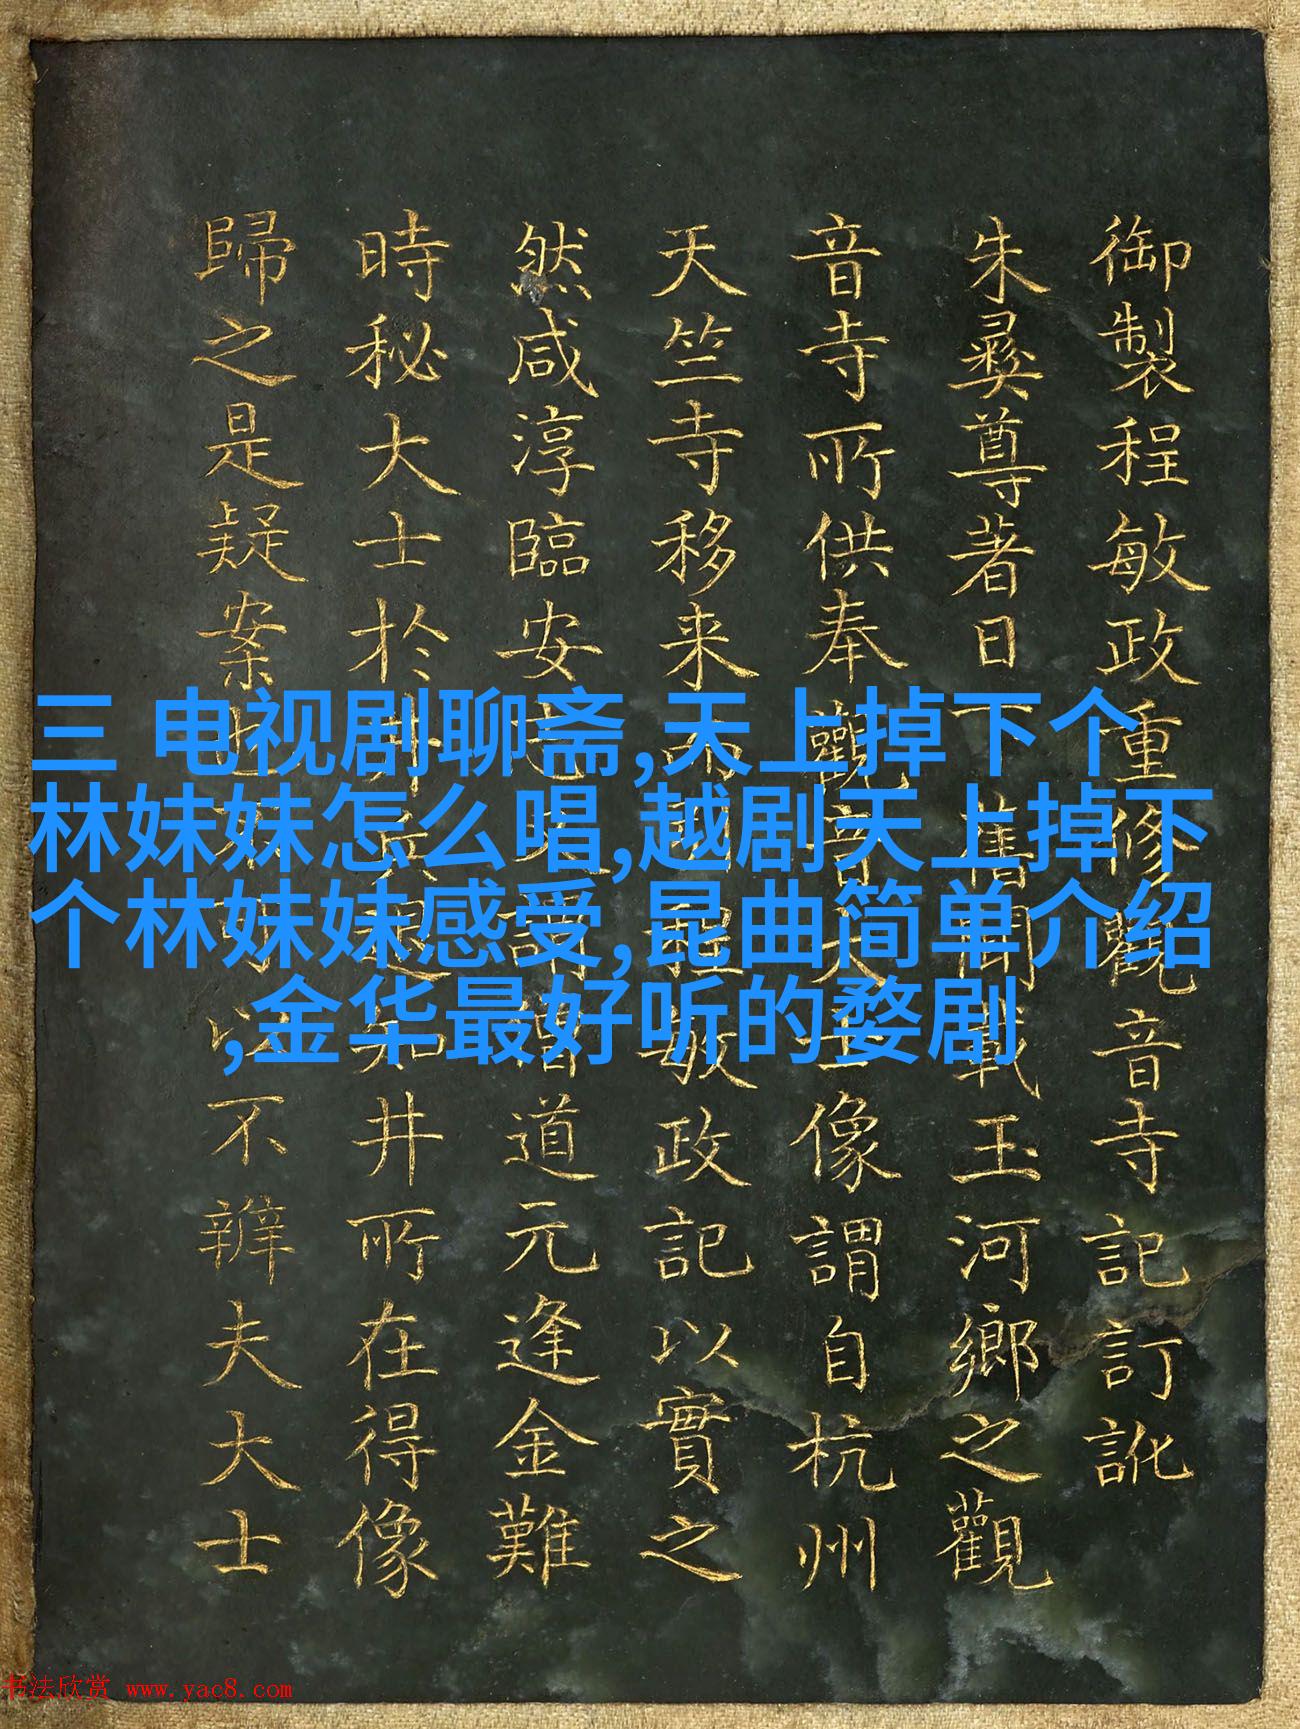 御製程敏政重修觀音寺記訂訛
朱彛尊著日下舊聞載玉河鄉之觀
音寺所供奉觀音大士像謂自杭州
天竺寺移来而程敏政記以實之
然咸淳臨安志謂晉道元逢金難
時秘大士於井兵退知井所在得像
歸之是疑案也不可以不辨夫大士
三 电视剧聊斋,天上掉下个
林妹妹怎么唱,越剧天上掉下
个林妹妹感受,昆曲简单介绍
,金华最好听的婺剧
书法欣赏 www.yac8.com